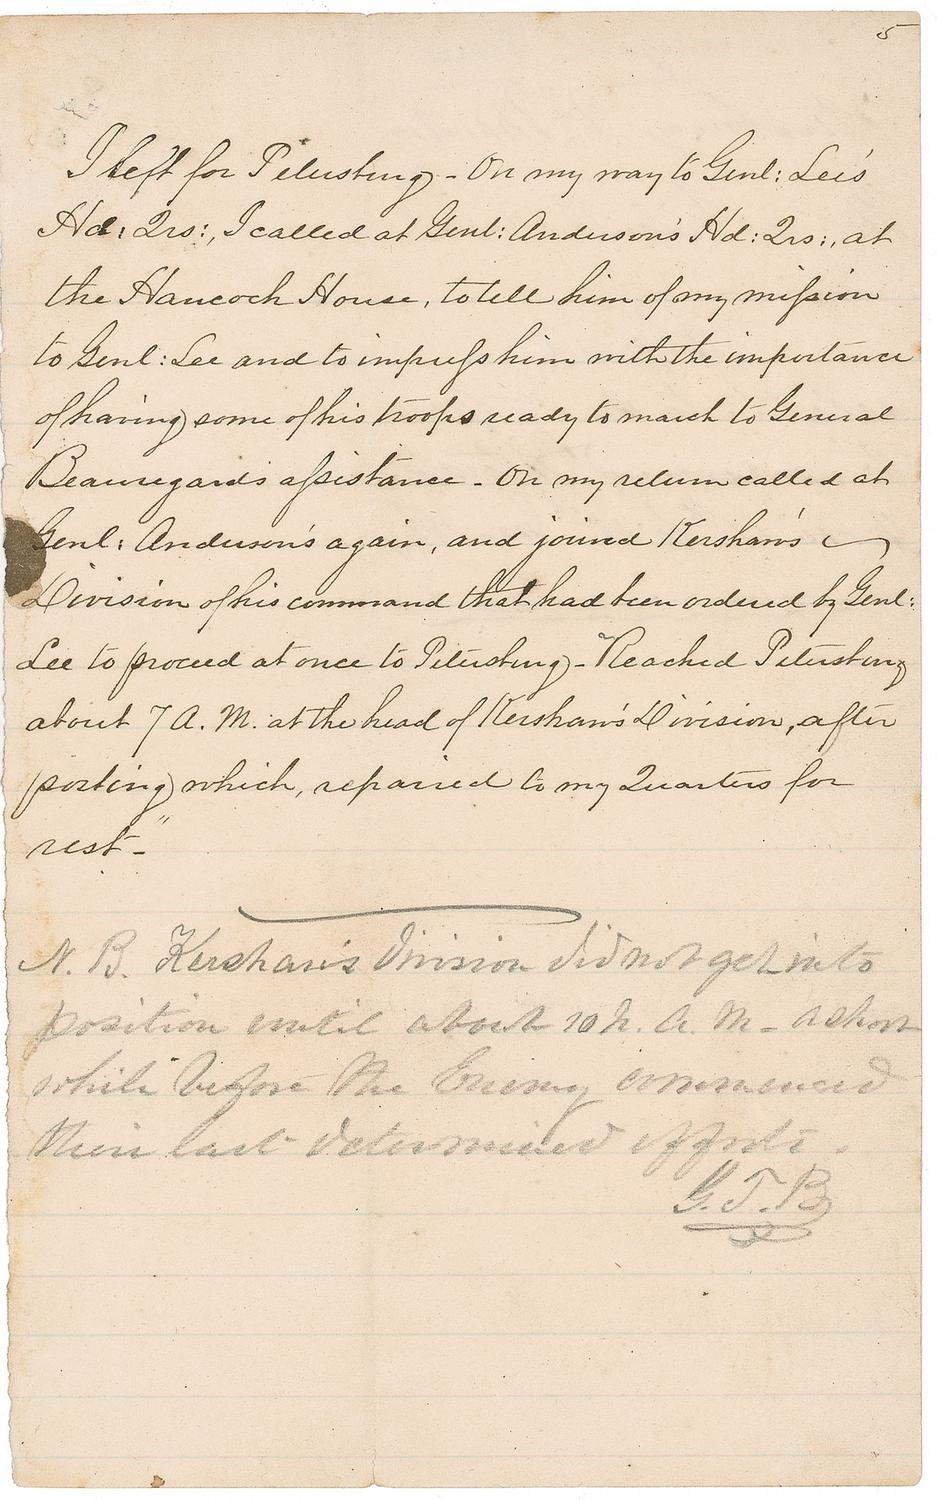 5
I left for Petersburg - On my way to Genl: Lee's
Hd: Qrs:, I called at Genl: Anderson's Hd: Qrs:, at
the Hancock House, to tell him of my mission
to Genl: Lee and to impress him with the importance
of having some of his troops ready to march to General
Beauregard's assistance - On my return called at
Genl: Anderson's again, and joined Kershaw's
Division of his command that had been ordered by Genl:
Lee to proceed at once to Petersburg - Reached Petersburg
about 7 A. M. at the head of Kershaw's Division, after
posting which, repaired to my Quarters for
rest -"
N. B. Kershaw's Division did not get into
position until about 10 h. A. M. - a short
while before the Enemy commenced
their last determined efforts.
G. T. B